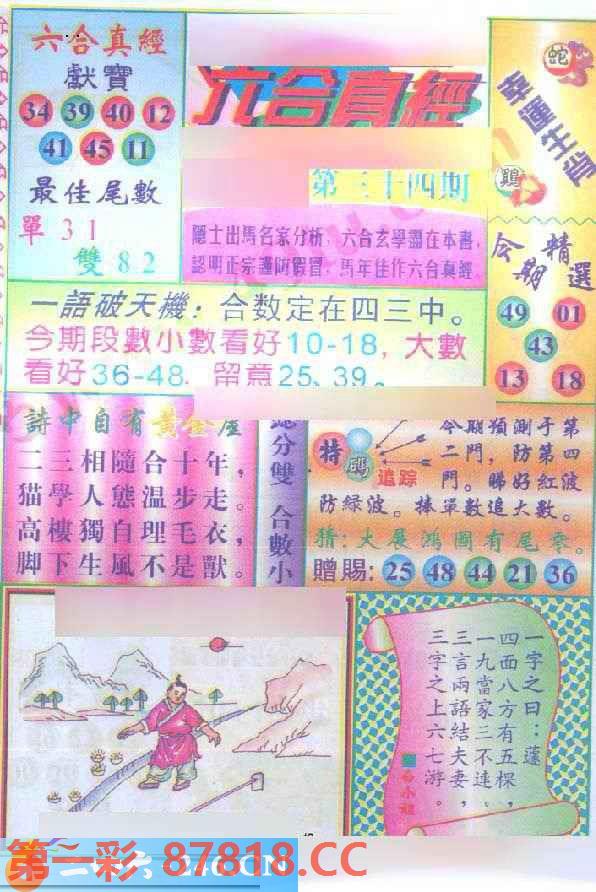 六合真經
獻寶
34 39 40 12
41 45 11
最佳尾數
單 31
雙 82
六合真經
第三十四期
隱士出馬名家分析，六合玄學盡在本書，
認明正宗謹防假冒，馬年佳作六合真經
幸運生肖
蛇
鷄
今期精選
49 01
43
13 18
一語破天機：合数定在四三中。
今期段數小數看好10-18，大數
看好36-48，留意25、39。
詩中自有黃金屋
二三相隨合十年，
猫學人態温步走。
高樓獨自理毛衣，
脚下生風不是獸。
總分雙 合數小
特碼追踪
今期須測于第
二門，防第四
門。睇好紅波
防緑波。捧單數追大數。
猜：大展鴻圖有尾零。
贈賜：25 48 44 21 36
一字之曰：蓬
四面八方有五棵，
一九當家三不連。
三言兩語結夫妻，
三字之上六七游。
第二彩.87818.CC
246.CN